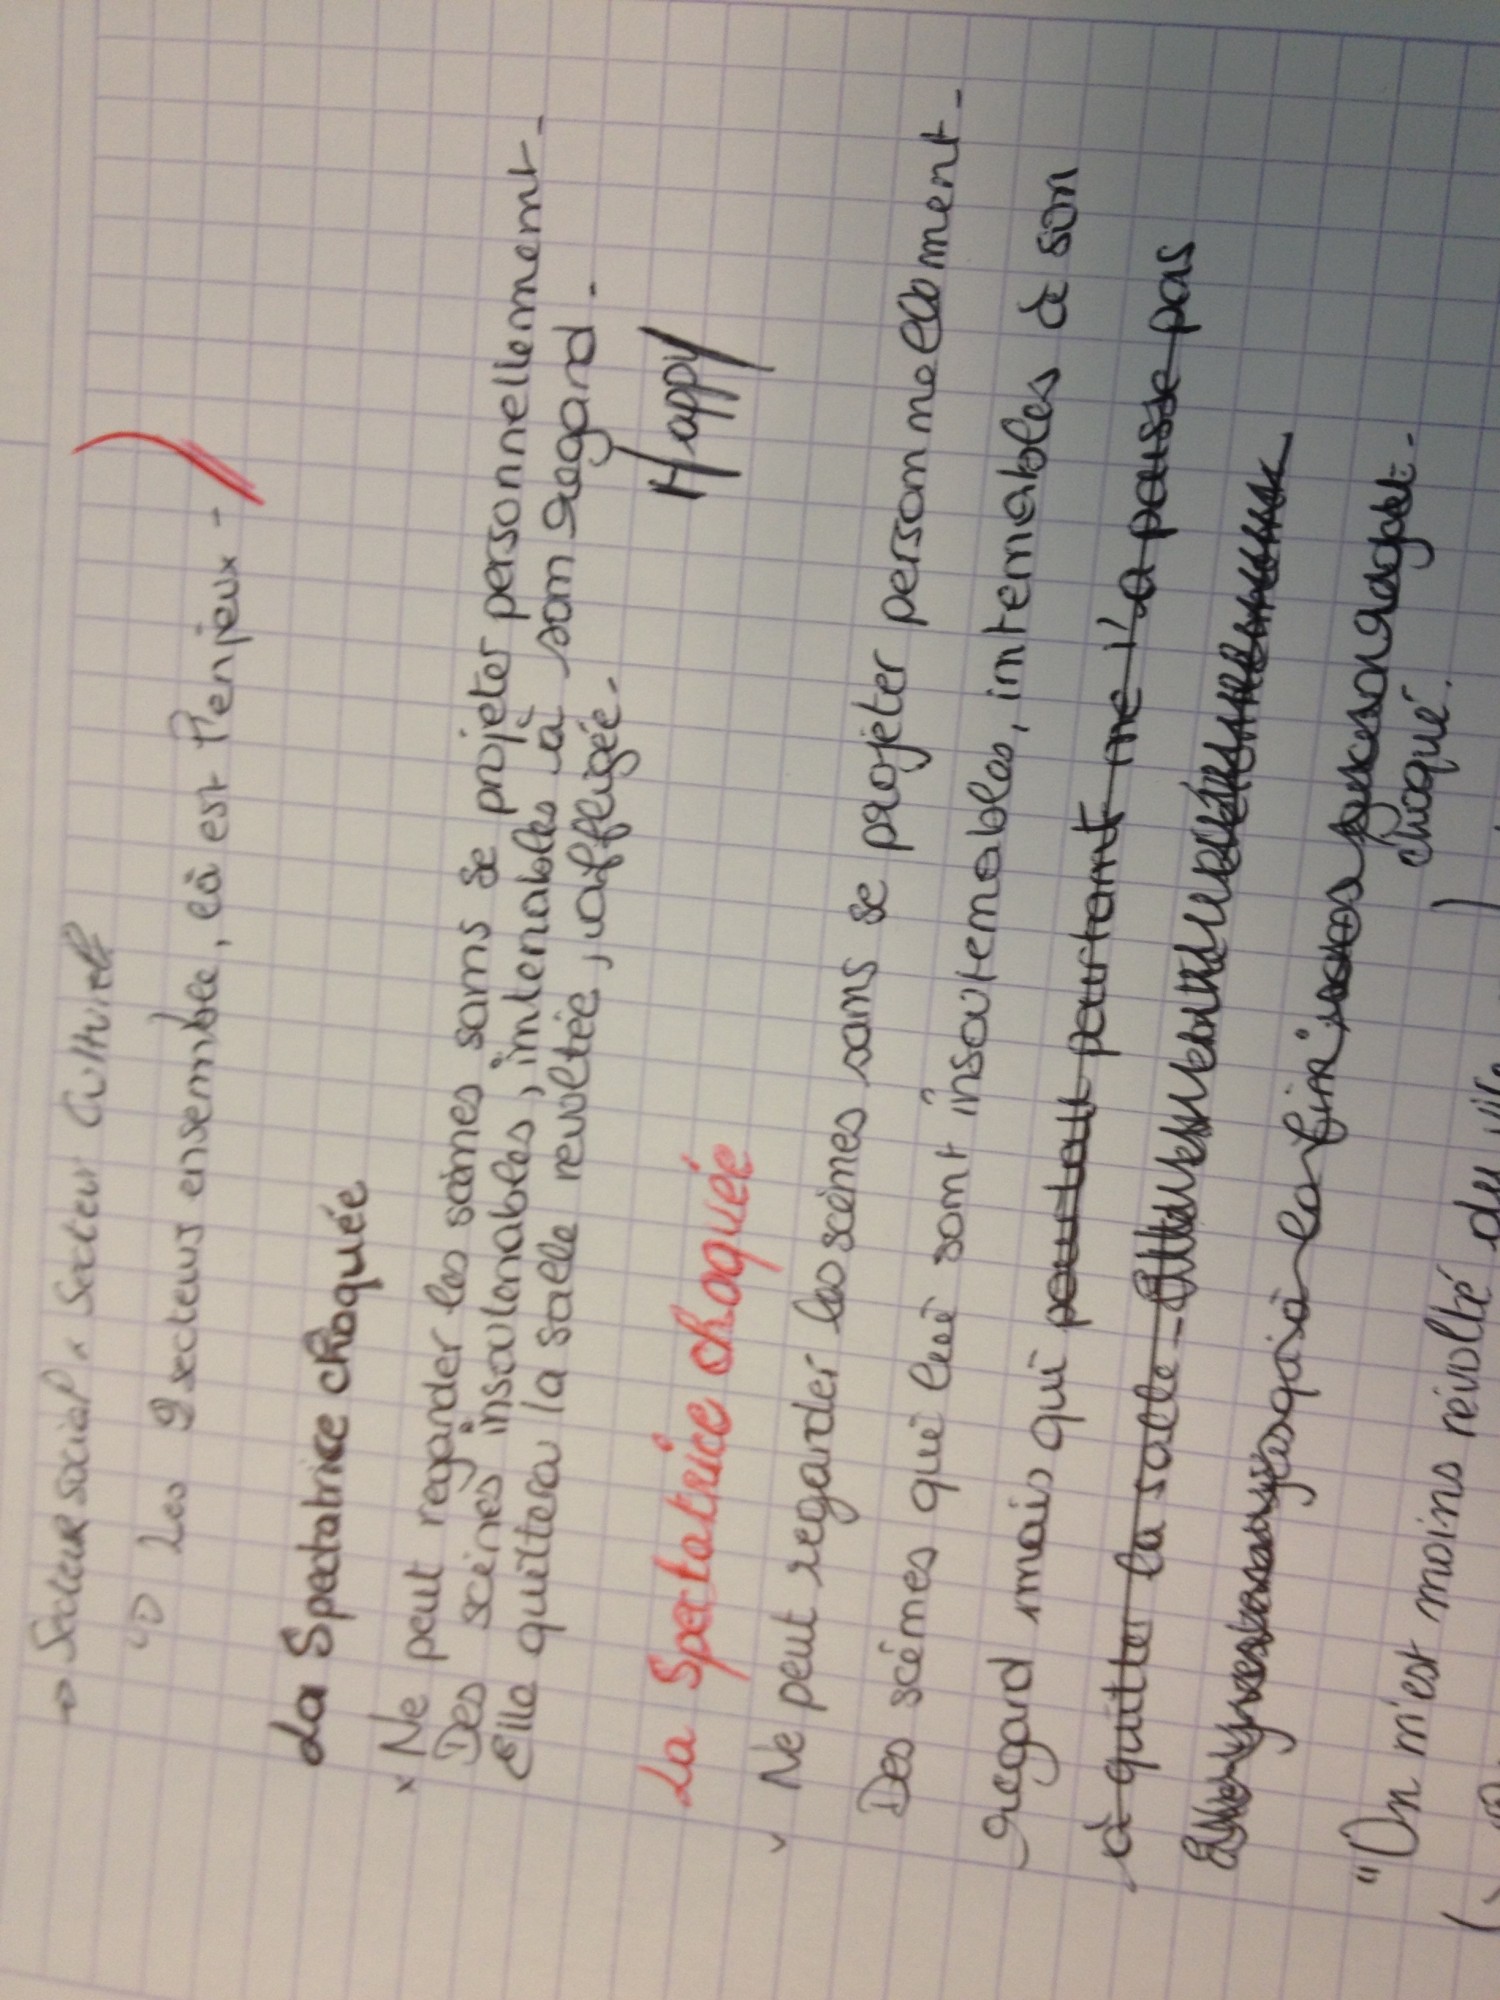 → Secteur social x Secteur Culturel
Les 2 secteurs ensemble, là est l'enjeux -
La Spectatrice choquée
x Ne peut regarder les scènes sans se projeter personnellement -
Des scènes insoutenables, intenables à son regard -
Elle quittera la salle révoltée, affligée -
Happy
La Spectatrice choquée
Ne peut regarder les scènes sans se projeter personnellement -
Des scènes qui lui sont insoutenables, intenables à son
regard mais qui pourtant ne l'a pousse pas
à quitter la salle -
jusqu'à la fin son regard -
choqué.
"On n'est moins révolté du